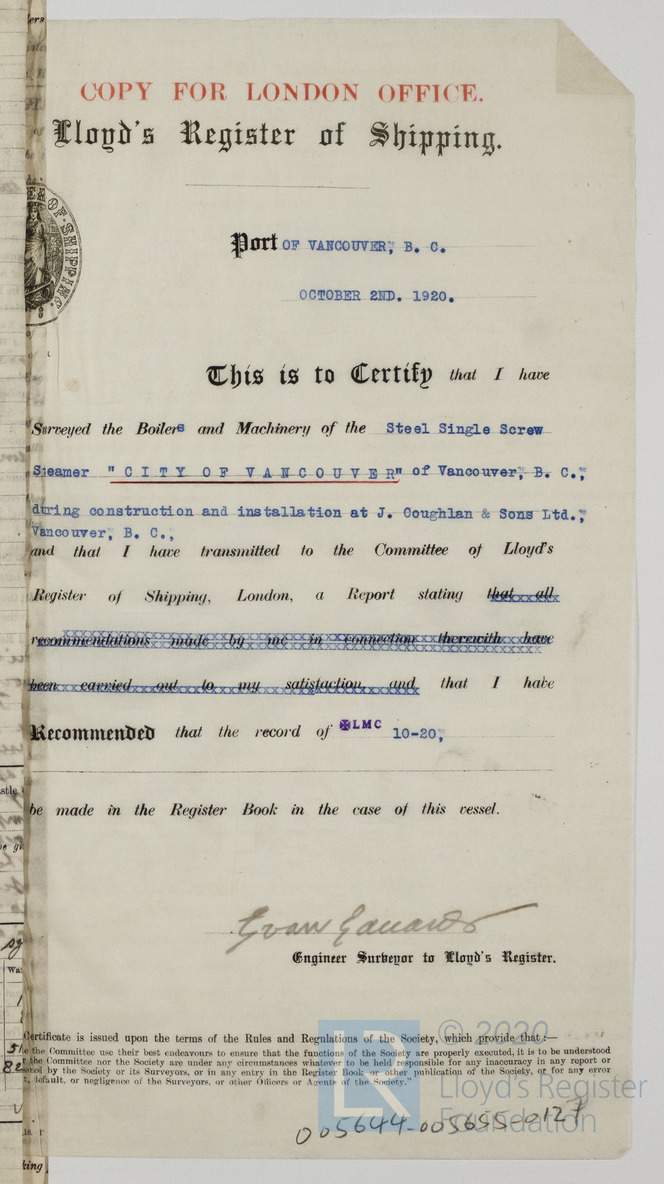 COPY FOR LONDON OFFICE.
Lloyd's Register of Shipping.
OF SHIPPING
Port OF VANCOUVER, B. C.
OCTOBER 2ND. 1920.
This is to Certify that I have
Surveyed the Boilers and Machinery of the Steel Single Screw
Steamer "CITY OF VANCOUVER" of Vancouver, B. C.,
during construction and installation at J. Coughlan & Sons Ltd.,
Vancouver, B. C.,
and that I have transmitted to the Committee of Lloyd's
Register of Shipping, London, a Report stating that all
recommendations made by me in connection therewith have
been carried out to my satisfaction, and that I have
Recommended that the record of ✠LMC 10-20,
be made in the Register Book in the case of this vessel.
Evan Edwards
Engineer Surveyor to Lloyd's Register.
Certificate is issued upon the terms of the Rules and Regulations of the Society, which provide that:—
the Committee use their best endeavours to ensure that the functions of the Society are properly executed, it is to be understood
the Committee nor the Society are under any circumstances whatever to be held responsible for any inaccuracy in any report or
issued by the Society or its Surveyors, or in any entry in the Register Book or other publication of the Society, or for any error
default, or negligence of the Surveyors, or other Officers or Agents of the Society."
LR
© 2020
Lloyd's Register
Foundation
005644-005655-0127